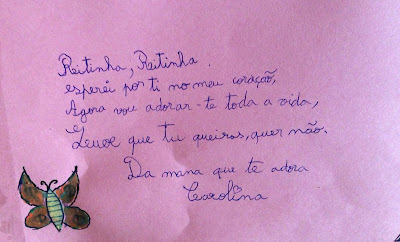 Reitinha, Reitinha.
esperei por ti no meu coração,
Agora vou adorar-te toda a vida,
e
que tu queiras, quer não.
Da mana que te adora
Carolina